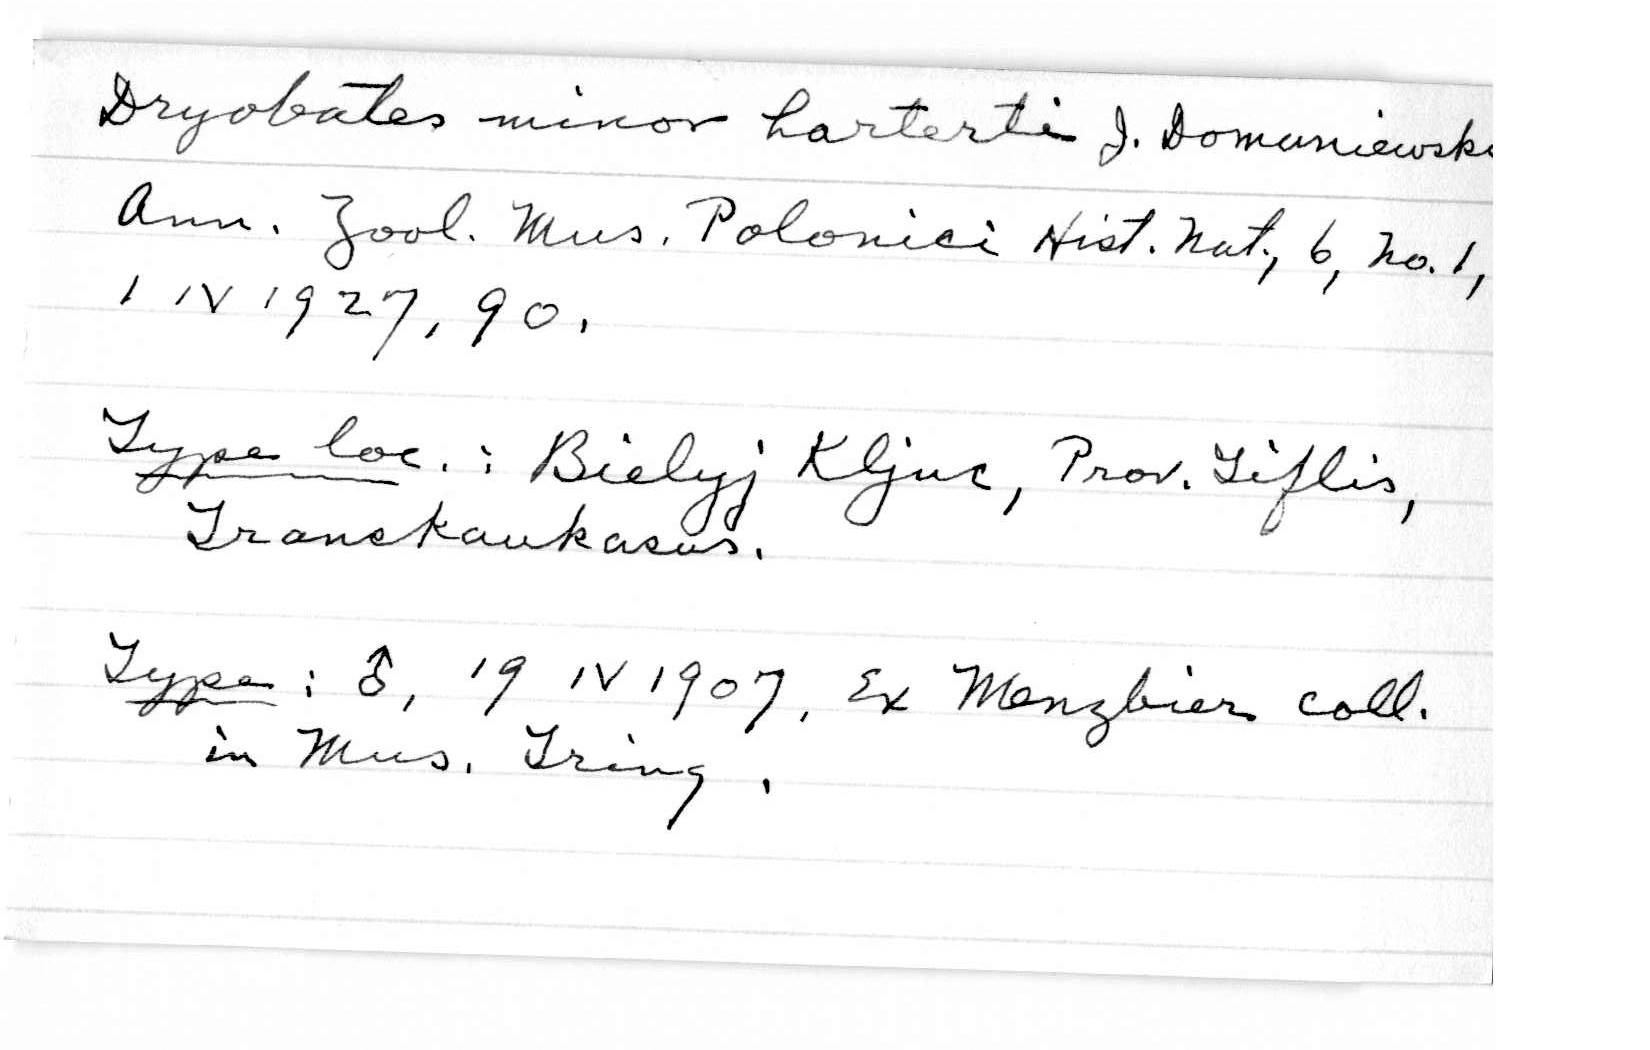 Dryobates minor harterti J. Domaniewski
Ann. Zool. Mus. Polonici Hist. Nat., 6, no. 1,
1 IV 1927, 90.
Type loc.: Bielyj Kljuc, Prov. Tiflis,
Transkaukasus.
Type: ♂, 19 IV 1907, Ex Menzbier coll.
in Mus. Tring.